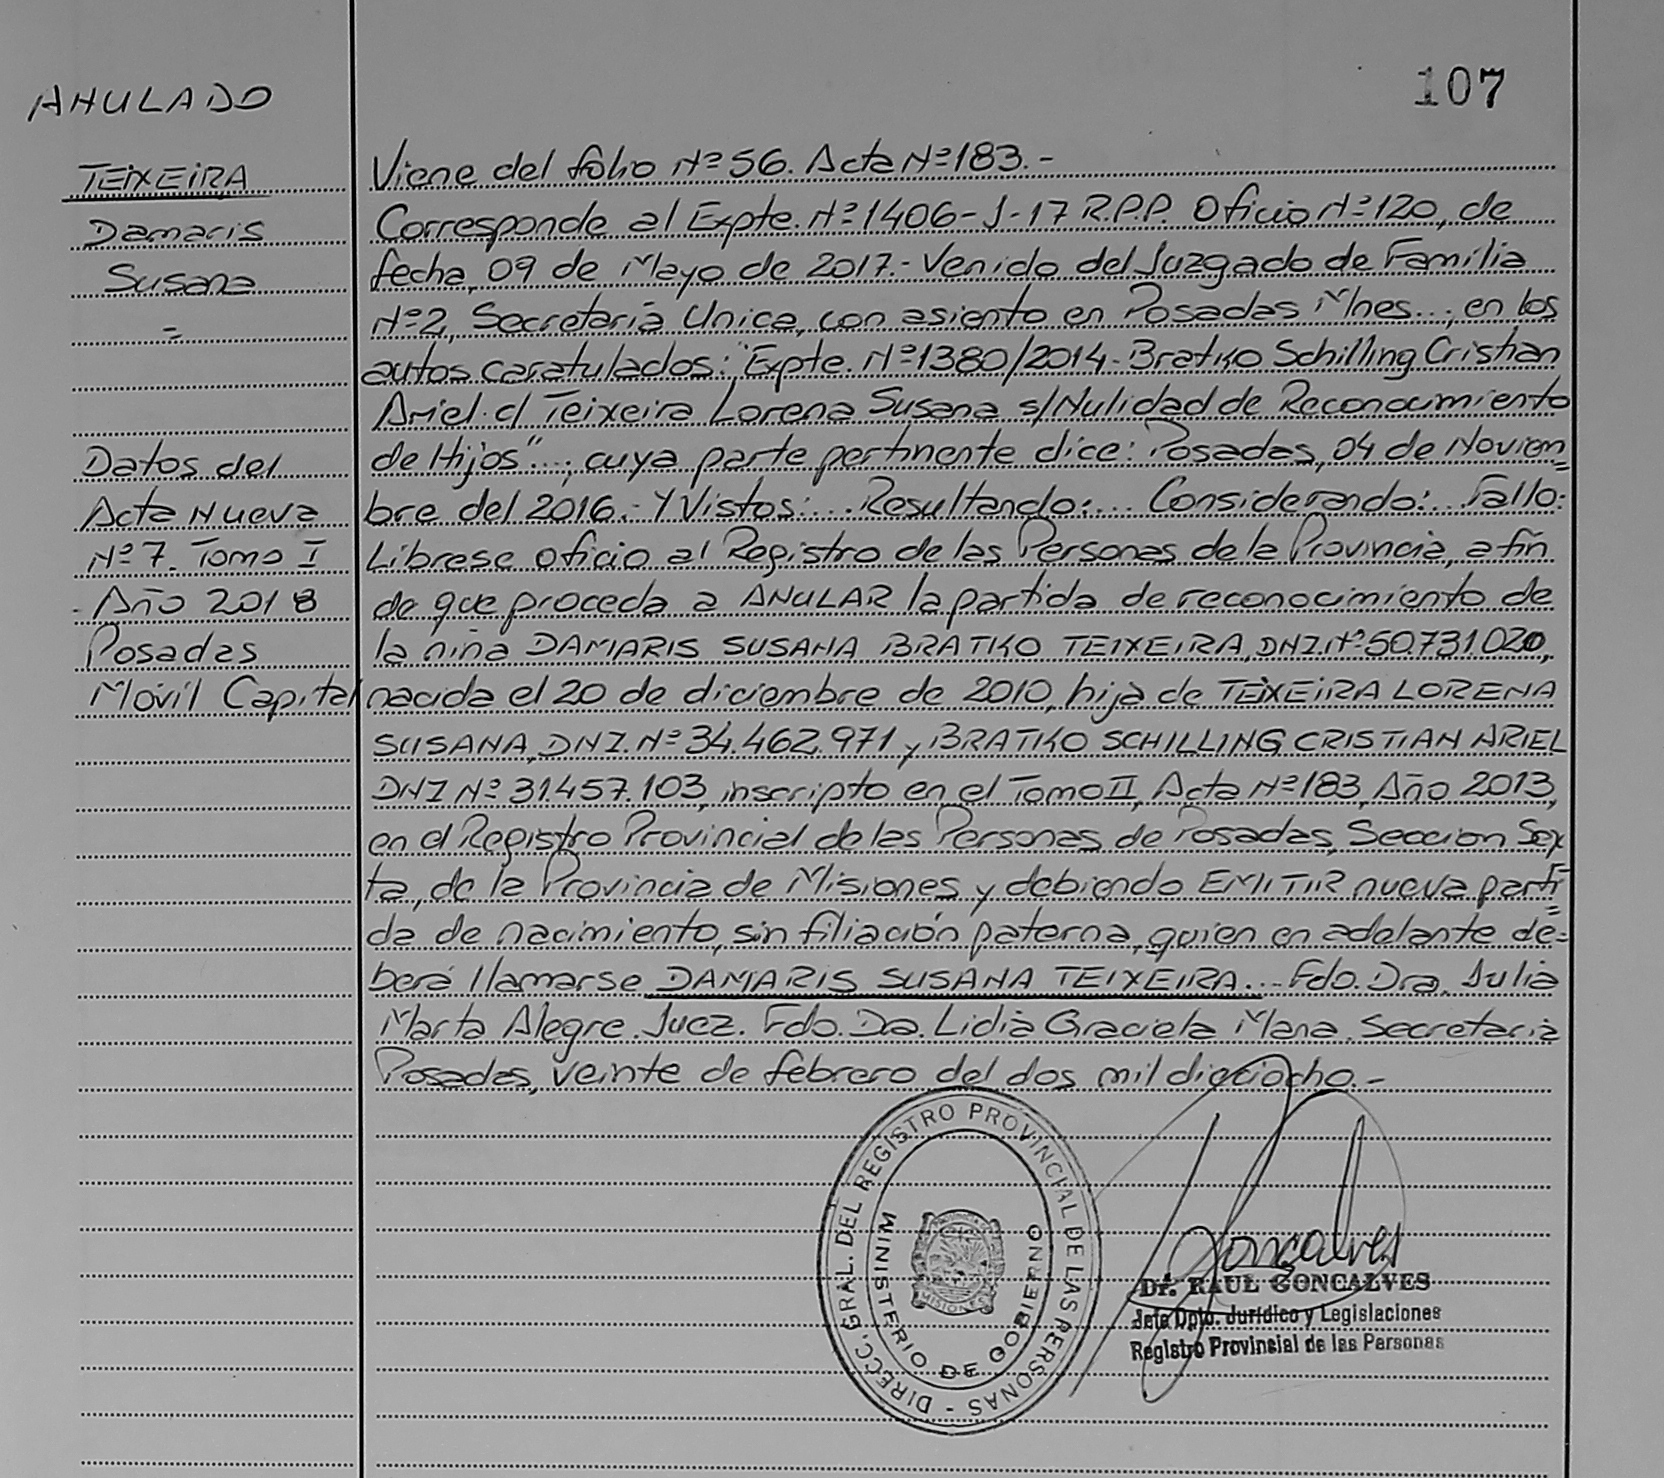 107
ANULADO
TEIXEIRA
Damaris
Susana
=
Datos del
Acta Nueva
Nº 7. Tomo I
- Año 2018
Posadas
Móvil Capital
Viene del folio Nº 56. Acta Nº 183.-
Corresponde al Expte. Nº 1406-J-17 R.P.P. Oficio Nº 120, de
fecha, 09 de Mayo de 2017.- Venido del Juzgado de Familia
Nº 2, Secretaria Unica, con asiento en Posadas Mnes...; en los
autos caratulados: "Expte. Nº 1380/2014- Bratko Schilling Cristian
Ariel. c/ Teixeira Lorena Susana s/Nulidad de Reconocimiento
de Hijos"...; cuya parte pertinente dice: Posadas, 04 de Noviem=
bre del 2016.- Y Vistos:... Resultando:... Considerando:... Fallo:
Líbrese oficio al Registro de las Personas de la Provincia, a fin
de que proceda a ANULAR la partida de reconocimiento de
la niña DAMARIS SUSANA BRATKO TEIXEIRA, DNI. Nº 50.731.020,
nacida el 20 de diciembre de 2010, hija de TEIXEIRA LORENA
SUSANA, DNI. Nº 34.462.971 y BRATKO SCHILLING CRISTIAN ARIEL
DNI Nº 31.457.103, inscripto en el Tomo II, Acta Nº 183, Año 2013,
en el Registro Provincial de las Personas de Posadas, Seccion Sex
ta, de la Provincia de Misiones y debiendo EMITIR nueva parti=
da de nacimiento, sin filiación paterna, quien en adelante de=
berá llamarse DAMARIS SUSANA TEIXEIRA... Fdo. Dra. Julia
Marta Alegre. Juez. Fdo. Dra. Lidia Graciela Mana. Secretaria
Posadas, veinte de febrero del dos mil dieciocho.-
DIRECC. GRAL. DEL REGISTRO PROVINCIAL DE LAS PERSONAS -
MINISTERIO DE GOBIERNO
MISIONES
Goncalves
Dr. RAUL GONCALVES
Jefe Dpto. Jurídico y Legislaciones
Registro Provincial de las Personas